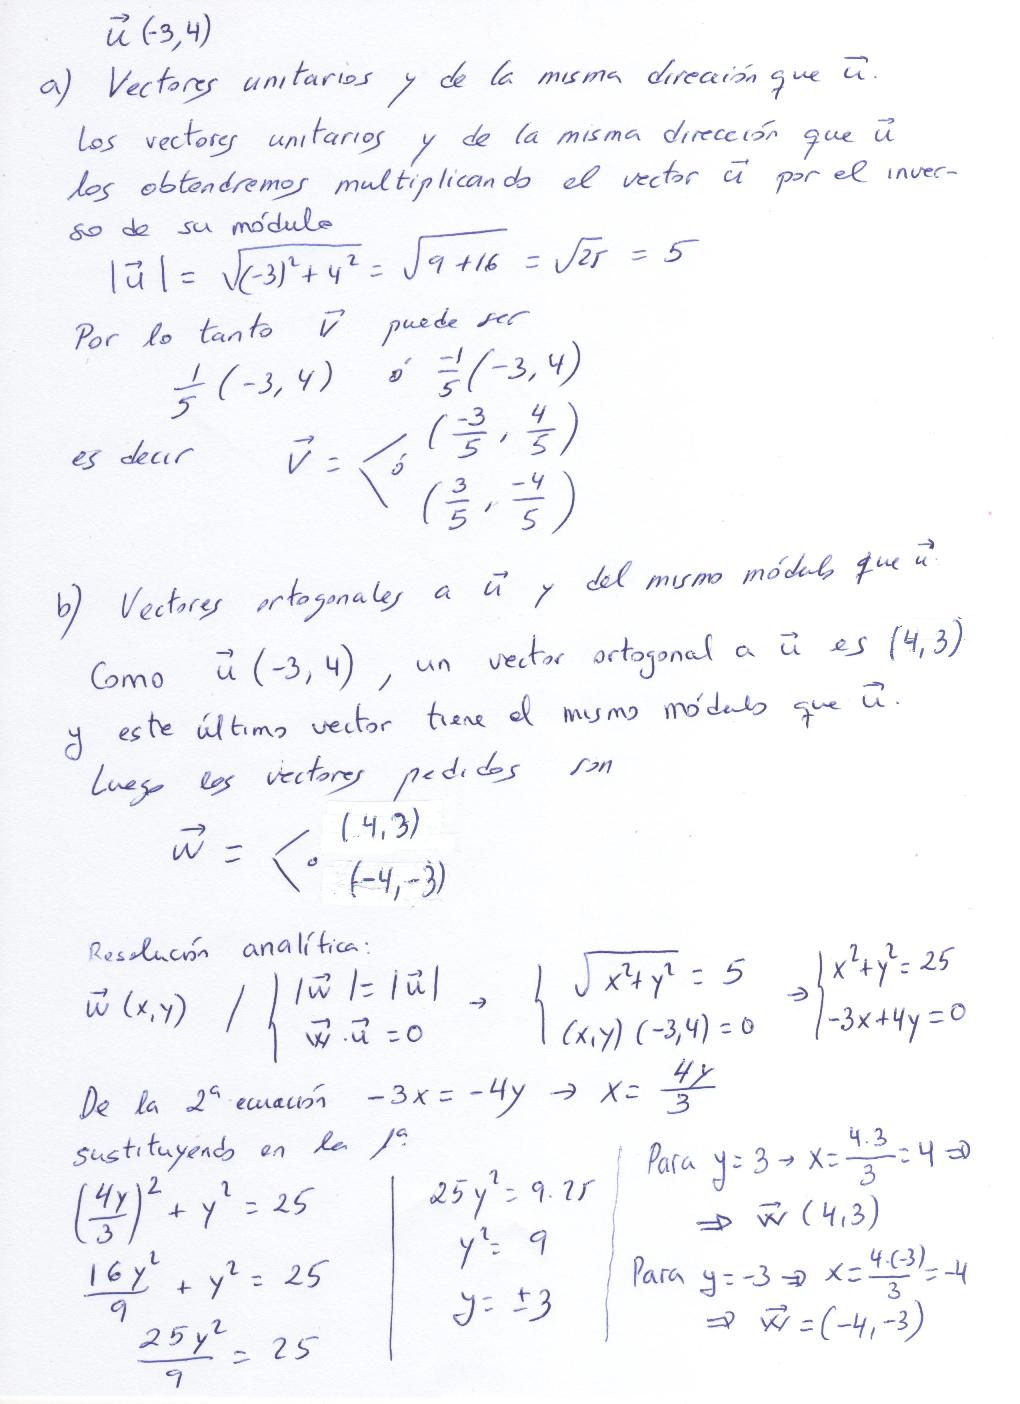 u⃗ (-3,4)
a) Vectores unitarios y de la misma dirección que u⃗.
Los vectores unitarios y de la misma dirección que u⃗
los obtendremos multiplicando el vector u⃗ por el inver-
so de su módulo
|u⃗| = √((-3)²+4²) = √(9+16) = √25 = 5
Por lo tanto v⃗ puede ser
1/5 (-3,4) ó -1/5 (-3,4)
es decir v⃗ = < (-3/5, 4/5)
ó
(3/5, -4/5)
b) Vectores ortogonales a u⃗ y del mismo módulo que u⃗.
Como u⃗ (-3,4), un vector ortogonal a u⃗ es (4,3)
y este último vector tiene el mismo módulo que u⃗.
Luego los vectores pedidos son
(4,3)
w⃗ = < o
(-4,-3)
Resolución analítica:
w⃗ (x,y) / { |w⃗| = |u⃗| → { √(x²+y²) = 5 → { x²+y²=25
w⃗·u⃗=0 (x,y)(-3,4)=0 -3x+4y=0
De la 2ª ecuación -3x=-4y → x= 4y/3
sustituyendo en la 1ª
(4y/3)² + y² = 25
16y²/9 + y² = 25
25y²/9 = 25
25y²=9·25
y²= 9
y= ±3
Para y=3 → x= 4·3/3 =4 ⇒
⇒ w⃗ (4,3)
Para y=-3 ⇒ x= 4·(-3)/3 =-4
⇒ w⃗ =(-4,-3)